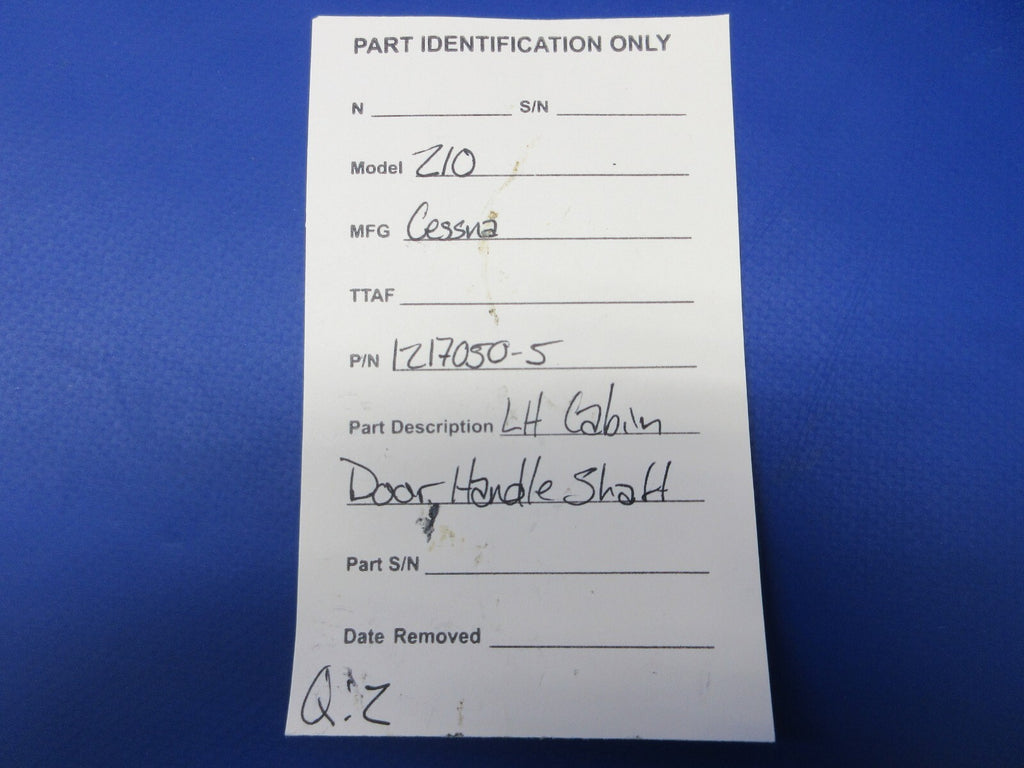 PART IDENTIFICATION ONLY
N S/N
Model 210
MFG Cessna
TTAF
P/N 1217050-5
Part Description LH Cabin
Door, Handle Shaft
Part S/N
Date Removed
Q:2